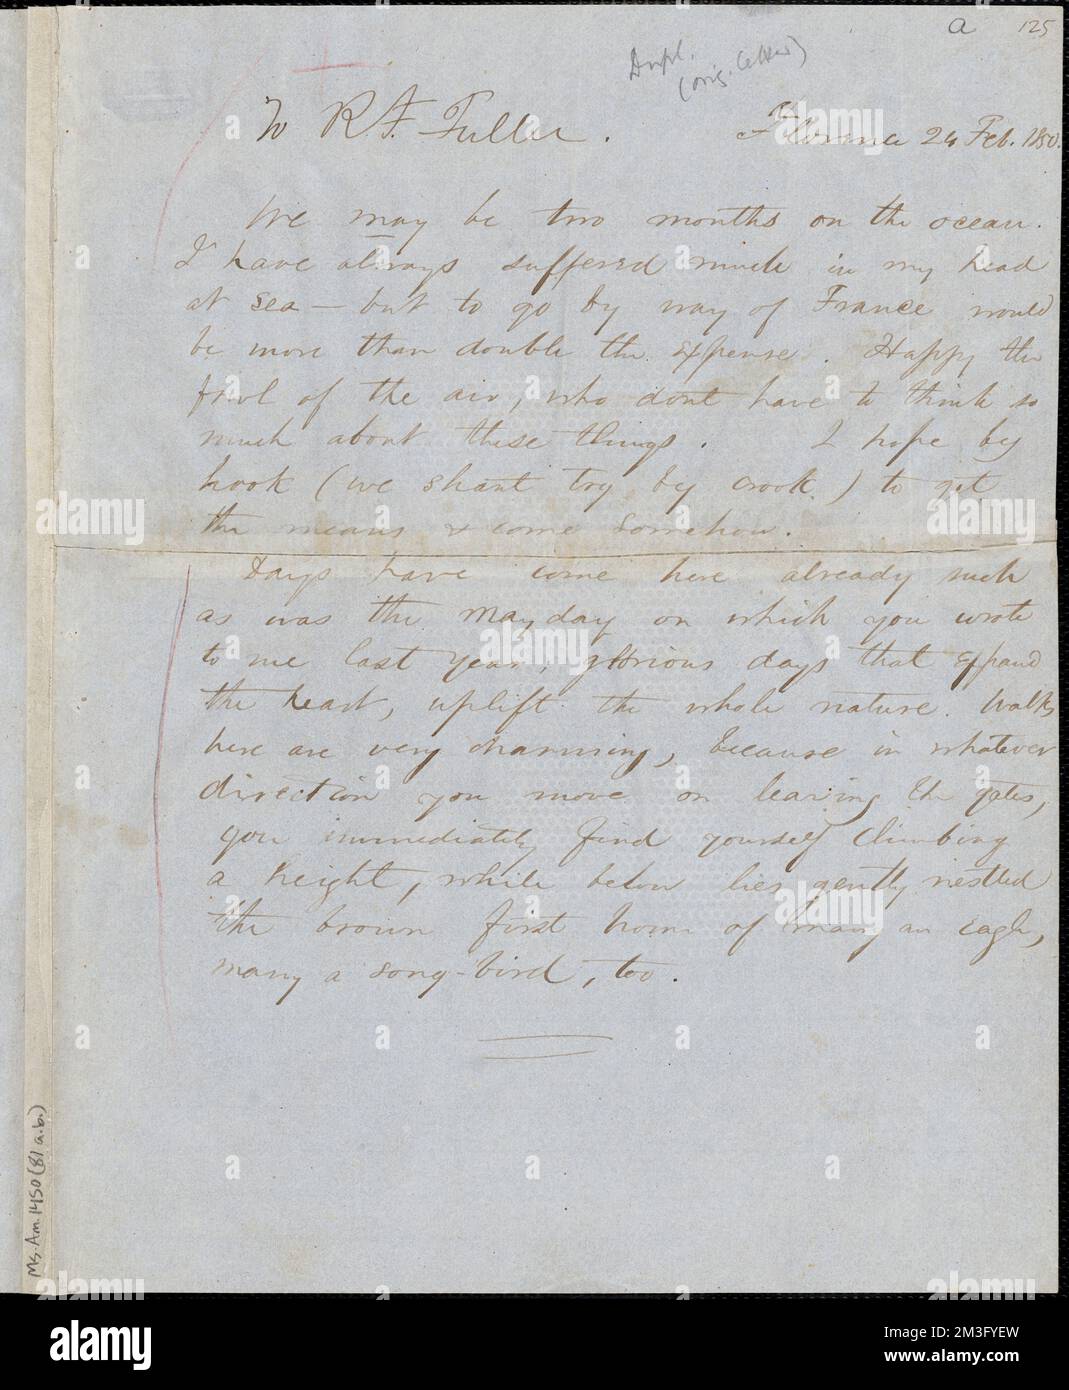 a 125
Dupl.
(orig. letter)
To R. F. Fuller.
Florence 24 Feb. 1850.
We may be two months on the ocean.
I have always suffered much in my head
at sea — but to go by way of France would
be more than double the expense. Happy the
fowl of the air, who dont have to think so
much about these things. I hope by
hook (we shant try by crook) to get
the means & come somehow.
Days have come here already such
as was the May day on which you wrote
to me last year, glorious days that expand
the heart, uplift the whole nature. Walks
here are very charming, because in whatever
direction you move on leaving the gates,
you immediately find yourself climbing
a height, while below lies gently nestled
the brown first home of many an eagle,
many a song-bird, too.
Ms. Am. 1450 (81 a.b.)
alamy
Image ID: 2M3FYEW
www.alamy.com